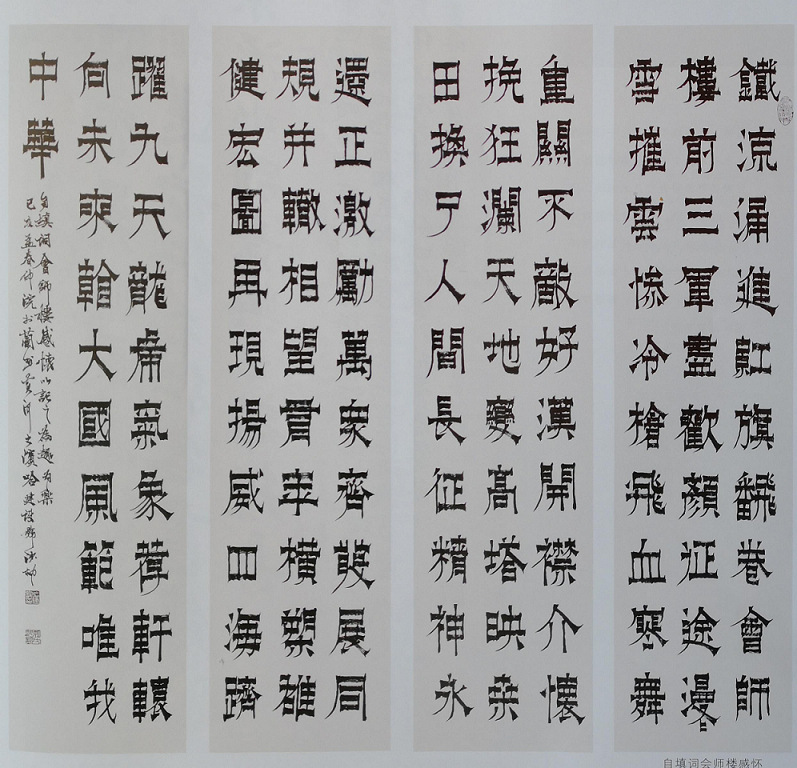 鐵流涌進紅旗飜卷會師
樓前三軍盡歡顏征途漫々
雪摧雲慘冷槍飛血寒舞
重關不敵好漢開襟介懷
挽狂瀾天地變高塔映桑
田換了人間長征精神永
還正激勵萬衆齊發展同
規并轍相望橫槊雄
健宏圖再現揚威四海躋
躍九天龍虎氣象軒轅
向未來大國風範唯我
中華
自填詞會師樓感懷以記之為趣有樂
己亥孟春仲浣於蘭州黃河之濱
自填词会师楼感怀